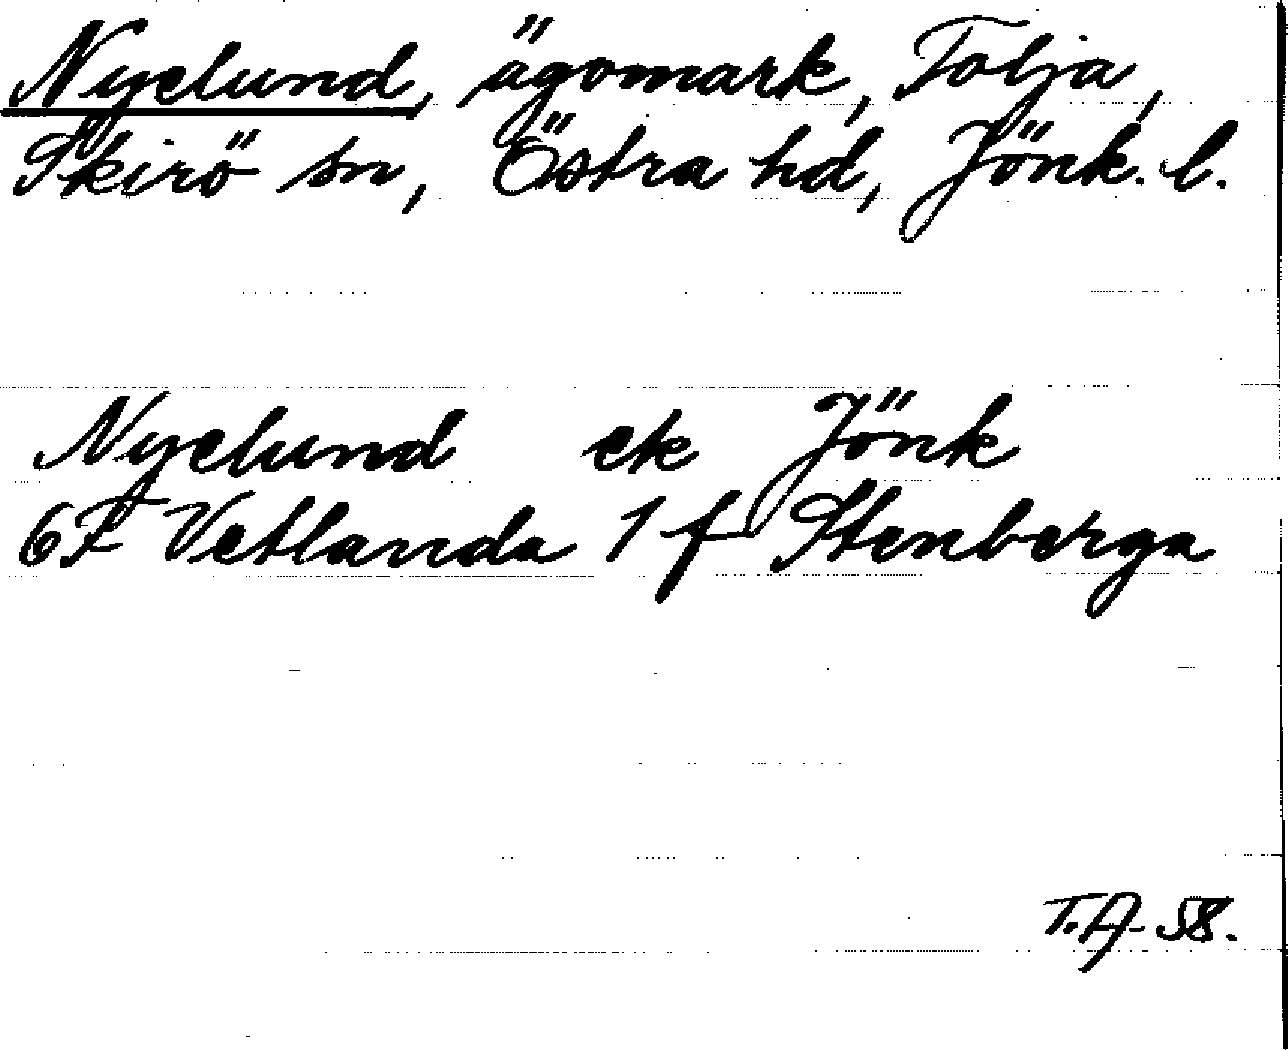 Nyelund, ägomark, Tolja,
Skirö sn, Östra hd, Jönk. l.
Nyelund ek Jönk
6F Vetlanda 1 f Stenberga
T.A-58.